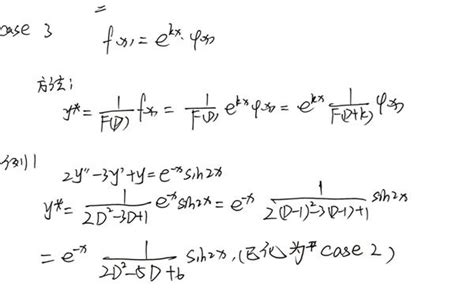 case 3 =
f(x) = e^{kx}·φ(x)
方法:
y* = \frac{1}{F(D)} f(x) = \frac{1}{F(D)} e^{kx} φ(x) = e^{kx} \frac{1}{F(D+k)} φ(x)
例1
2y'' - 3y' + y = e^{-x} sin2x
y* = \frac{1}{2D² - 3D + 1} e^{-x} sin2x = e^{-x} \frac{1}{2(D-1)² - 3(D-1) + 1} sin2x
= e^{-x} \frac{1}{2D² - 5D + 6} · sin2x. (已化为 case 2)